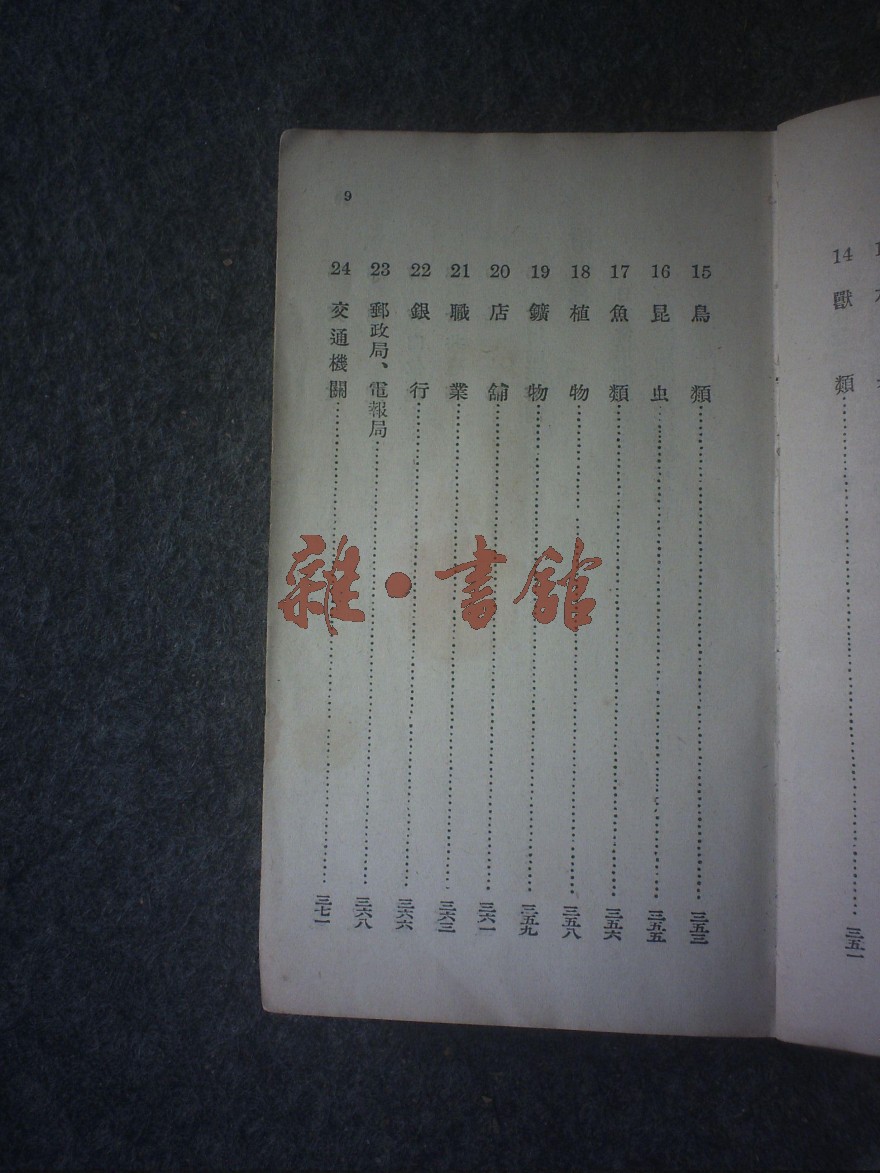 14 獸類 三五一
9
15 鳥類 三五三
16 昆虫 三五五
17 魚類 三五六
18 植物 三五八
19 鑛物 三五九
20 店舖 三六一
21 職業 三六三
22 銀行 三六六
23 郵政局、電報局 三六八
24 交通機關 三七一
雜·書館